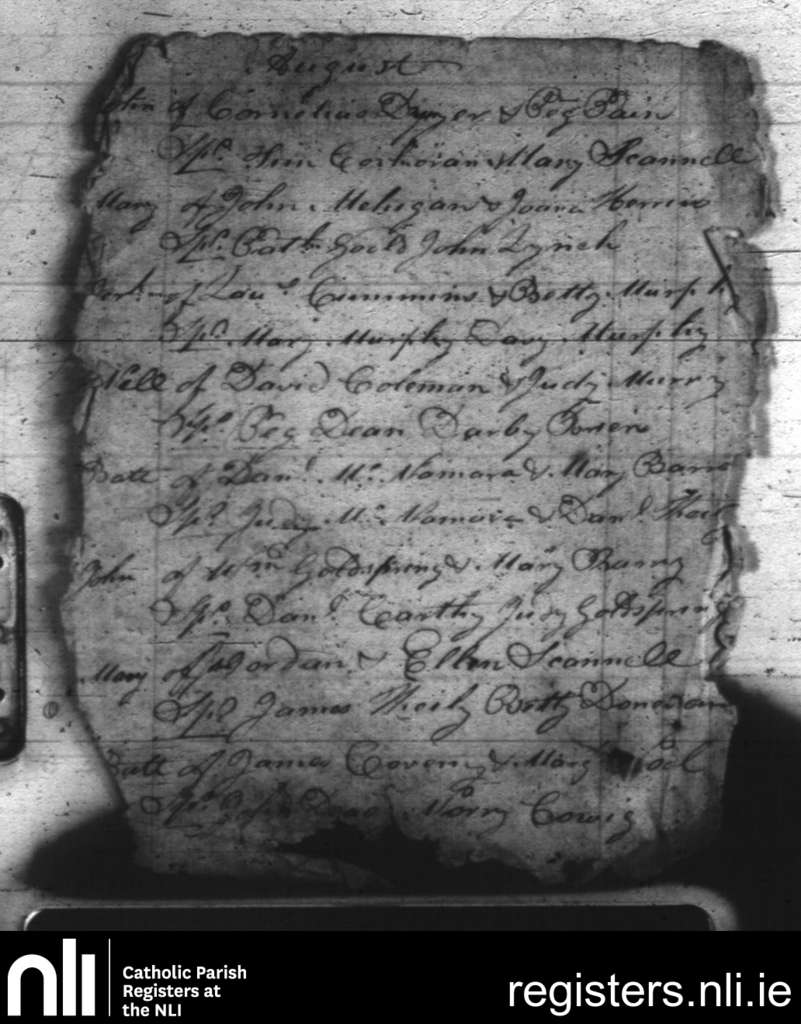 August
of Cornelius Dwyer & Peg Bain
Sps. Corkoran & Mary Scannell
Mary of John Mehigan & Joana
Sps. John Lynch
of Laus. Cummins & Betty Murph
Sps. Mary Murphy Davy Murphy
Nell of David Coleman & Judy Murry
Sps. Peg Dean Darby
Batt of Danl. Mc. Namara & Mary Barre
Sps. Judy Mc. Namara & Danl.
John of Wm. Goldspring & Mary Barry
Sps. Danl. Carthy Judy Goldspring
Mary of Jordan & Ellen Scannell
Sps. James Betty Donovan
of James Coveny & Mary
Sps. Cowig
nli
Catholic Parish
Registers at
the NLI
registers.nli.ie